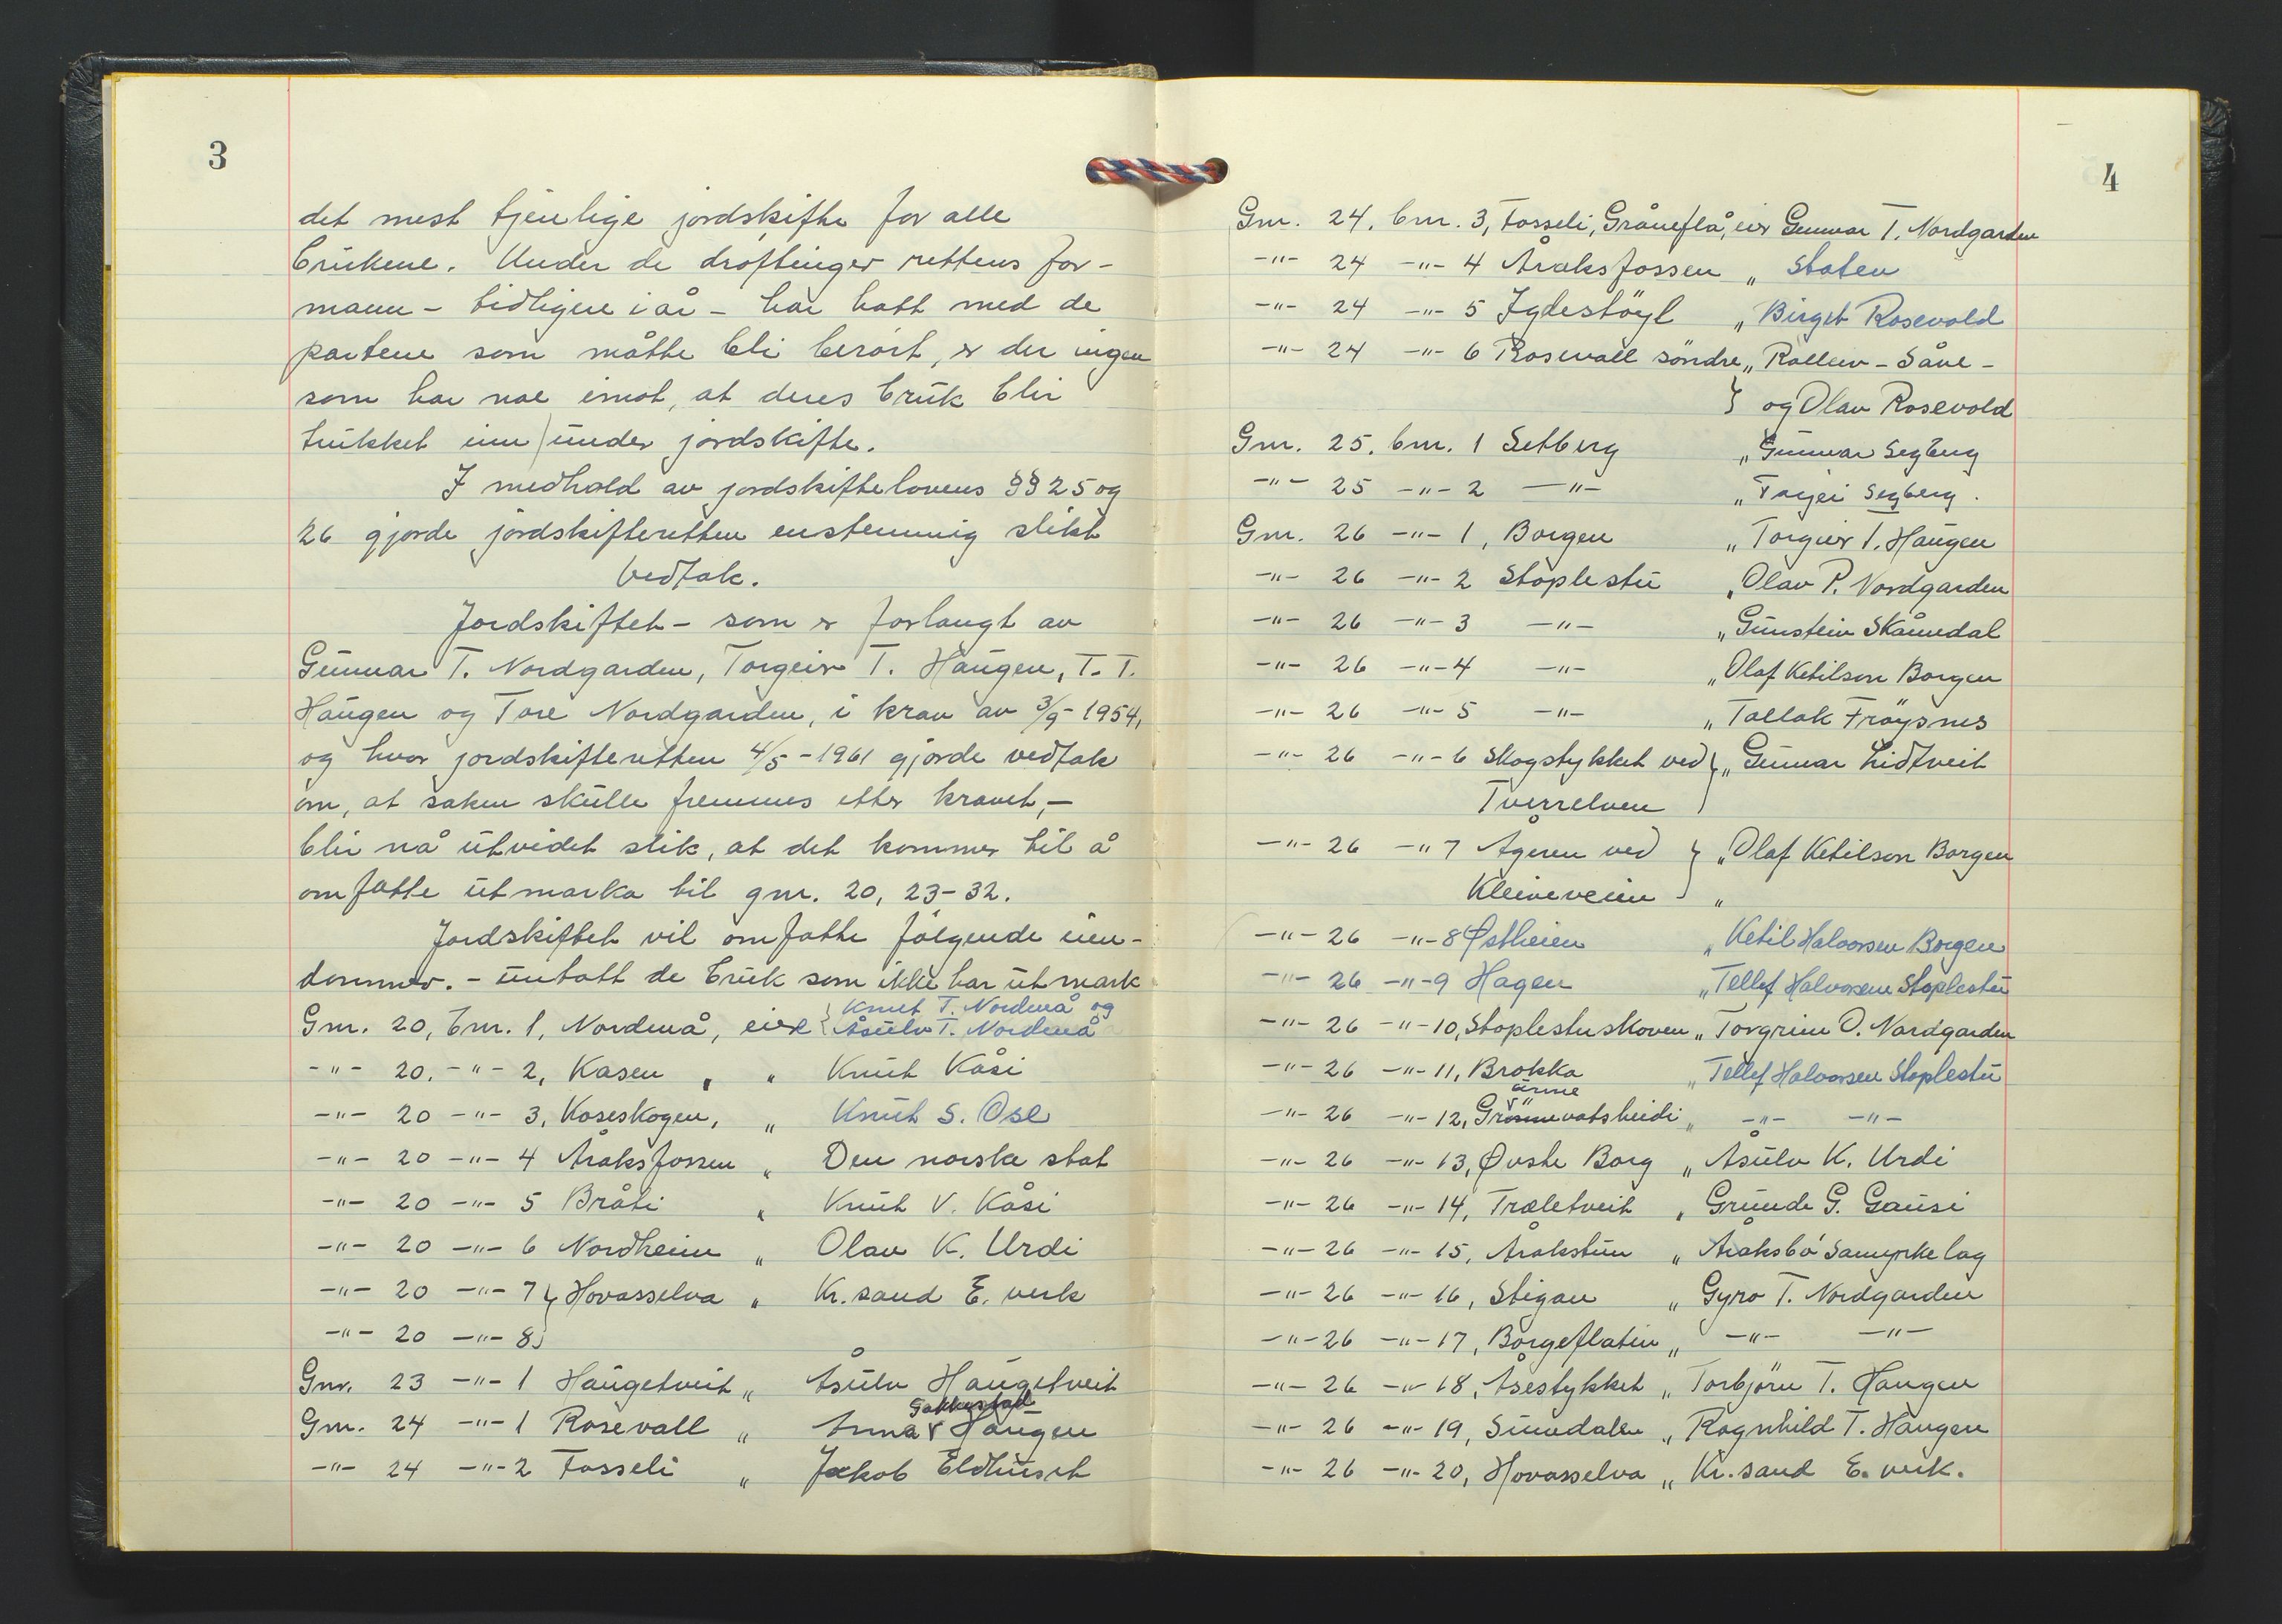 3
det mest tjenlige jordskifte for alle
brukene. Under de drøftinger rettens for-
mann - tidligere i år - har hatt med de
partene som måtte bli berørt, er der ingen
som har noe imot, at deres bruk blir
trukket inn under jordskifte.
I medhold av jordskiftelovens §§ 25 og
26 gjorde jordskifteretten enstemmig slikt
vedtak.
Jordskiftet - som er forlangt av
Gunnar T. Nordgarden, Torgeir T. Haugen, T. T.
Haugen og Tore Nordgarden, i krav av 3/9-1954,
og hvor jordskifteretten 4/5-1961 gjorde vedtak
om, at saken skulle fremmes etter kravet, -
blir nå utvidet slik, at det kommer til å
omfatte utmarka til gnr. 20, 23-32.
Jordskiftet vil omfatte følgende eien-
dommer. - untatt de bruk som ikke har utmark
Knut T. Nordnå og
Gnr. 20, bnr. 1, Nordnå, eier { Åsulv T. Nordnå
-"- 20. -"- 2, Kasen, " Knut Kåsi
-"- 20 -"- 3, Koseskogen, " Knut S. Ose
-"- 20 -"- 4 Åraksfossen " Den norske stat
-"- 20 -"- 5 Bråti " Knut V. Kåsi
-"- 20 -"- 6 Nordheim " Olav K. Urdi
-"- 20 -"- 7 } Hovasselva " Kr.sand E. verk
-"- 20 -"- 8 }
Gnr. 23 -"- 1 Haugetveit " Åsulv Haugetveit
Gnr. 24 -"- 1 Rosevall " Anna Haugen
-"- 24 -"- 2 Fosseli " Jakob Eldhuset
4
Gnr. 24, bnr. 3, Fosseli, Gråneflå, eier Gunnar T. Nordgarden
-"- 24 -"- 4 Åraksfossen " Staten
-"- 24 -"- 5 Igdestøyl " Birget Rosevold
-"- 24 -"- 6 Rosevall søndre " -
} og Olav Rosevold
Gnr. 25, bnr. 1 Setberg " Gunnar Segberg
-"- 25 -"- 2 -"- " Torgei Segberg.
Gnr. 26 -"- 1, Borgen " Torgeir T. Haugen
-"- 26 -"- 2 Stoplestu " Olav P. Nordgarden
-"- 26 -"- 3 -"- " Gunstein Skåmedal
-"- 26 -"- 4 -"- " Olaf Ketilson Borgen
-"- 26 -"- 5 -"- " Tallak Frøysnes
-"- 26 -"- 6 Skogstykket ved } " Gunnar Lidtveit
Tverrelven }
-"- 26 -"- 7 Ågeren ved } " Olaf Ketilson Borgen
Kleiveveien } "
-"- 26 -"- 8 Østheien " Ketil Halvorsen Borgen
-"- 26 -"- 9 Hagen " Tellef Halvorsen Stoplestu
-"- 26 -"- 10, Stoplestuskoven " Torgrim O. Nordgarden
-"- 26 -"- 11, Brokka " Tellef Halvorsen Stoplestu
-"- 26 -"- 12, Grønnevatsheidi " -"- -"-
-"- 26 -"- 13, Øvste Borg " Åsulv K. Urdi
-"- 26 -"- 14, Træletveit " Grunde G. Gausi
-"- 26 -"- 15, Årakstun " Åraksbø Samyrkelag
-"- 26 -"- 16, Stigan " Gyro T. Nordgarden
-"- 26 -"- 17, Borgeflatin " -"- -"-
-"- 26 -"- 18, Åsestykket " Torbjørn T. Haugen
-"- 26 -"- 19, Sundalen " Ragnhild T. Haugen
-"- 26 -"- 20, Hovasselva " Kr.sand E. verk.